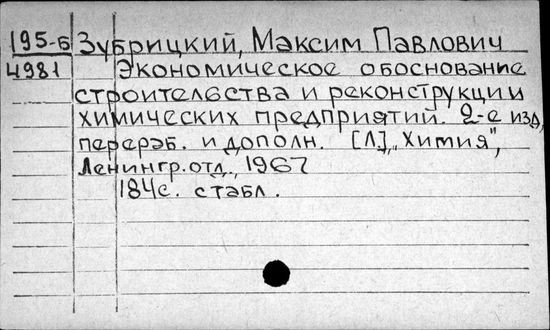 195-б Зубрицкий, Максим Павлович
4981 Экономическое обоснование
строительства и реконструкции
химических предприятий. 2-е изд,
перераб. и дополн. [Л], „Химия",
Ленингр. отд., 1967
184с. стабл.